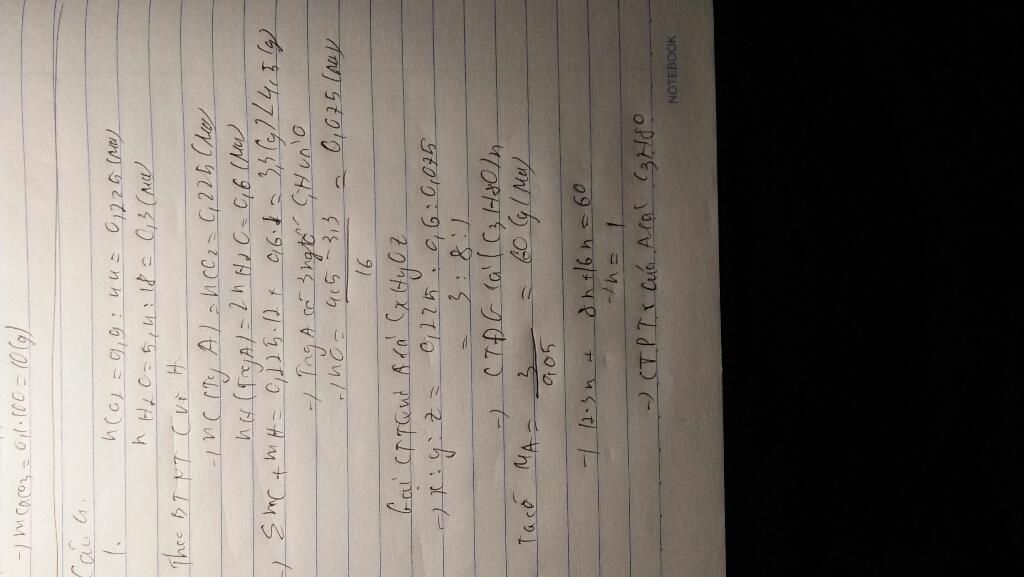 → mCaCO3 = 0,1.100 = 10(g)
Câu 4.
1. nCO2 = 9,9 : 44 = 0,225 (mol)
nH2O = 5,4 : 18 = 0,3 (mol)
Theo BTNT C và H
→ nC (Trg A) = nCO2 = 0,225 (mol)
nH (Trg A) = 2nH2O = 0,6 (mol)
→ Σ mC + mH = 0,225.12 + 0,6.1 = 3,3 (g) < 4,5 (g)
→ Trg A có 3 ngtố C, H và O
→ nO = 4,5 - 3,3 / 16 = 0,075 (mol)
Gọi CTTQ của A là CxHyOz
→ x : y : z = 0,225 : 0,6 : 0,075
= 3 : 8 : 1
→ CTĐG là (C3H8O)n
Ta có MA = 3 / 0,05 = 60 (g/mol)
→ 12.3n + 8n + 16n = 60
→ n = 1
→ CTPT của A là C3H8O
NOTEBOOK